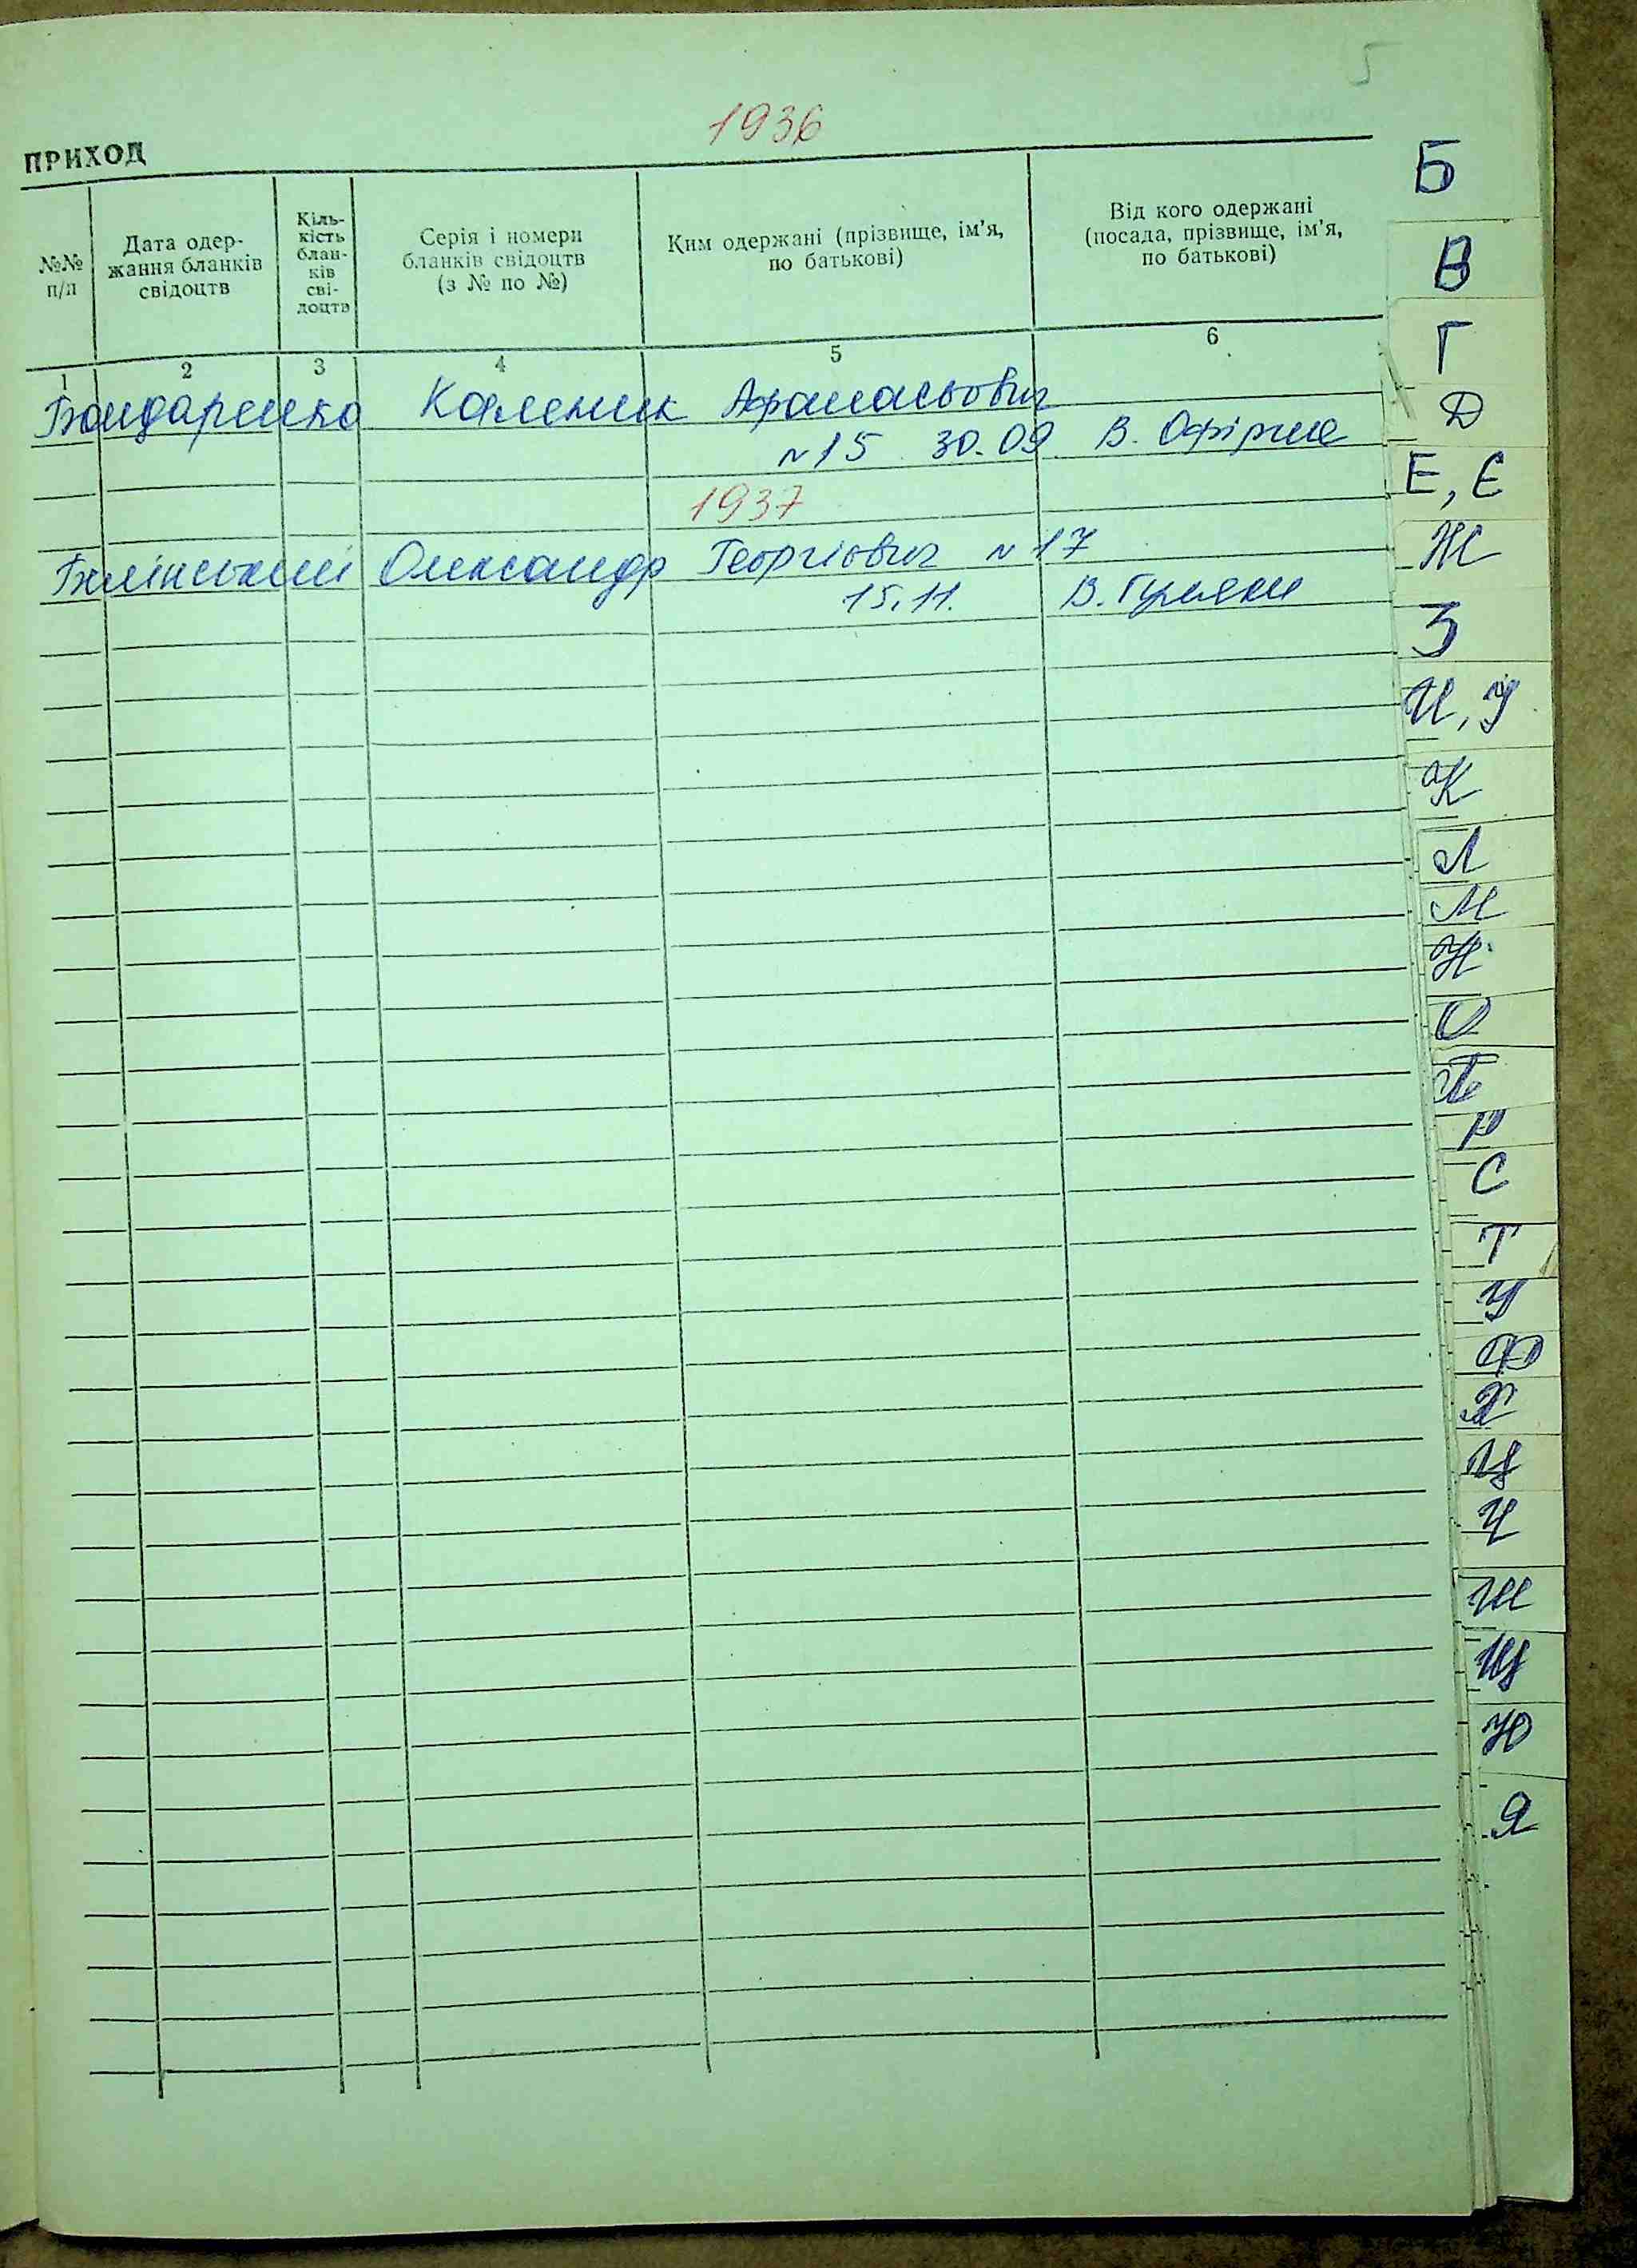 5
1936
ПРИХОД
№№ п/п
Дата одер-
жання бланків
свідоцтв
Кіль-
кість
блан-
ків
сві-
доцтв
Серія і номери
бланків свідоцтв
(з № по №)
Ким одержані (прізвище, ім'я,
по батькові)
Від кого одержані
(посада, прізвище, ім'я,
по батькові)
1 2 3 4 5 6
Бондаренко Каленик Афанасьович
№15 30.09. В. Офірна
1937
Білінський Олександр Георгіович №17
15.11. В. Гуляки
Б
В
Г
Д
Е, Є
Ж
З
И, Й
К
Л
М
Н
О
П
Р
С
Т
У
Ф
Х
Ц
Ч
Ш
Щ
Ю
Я